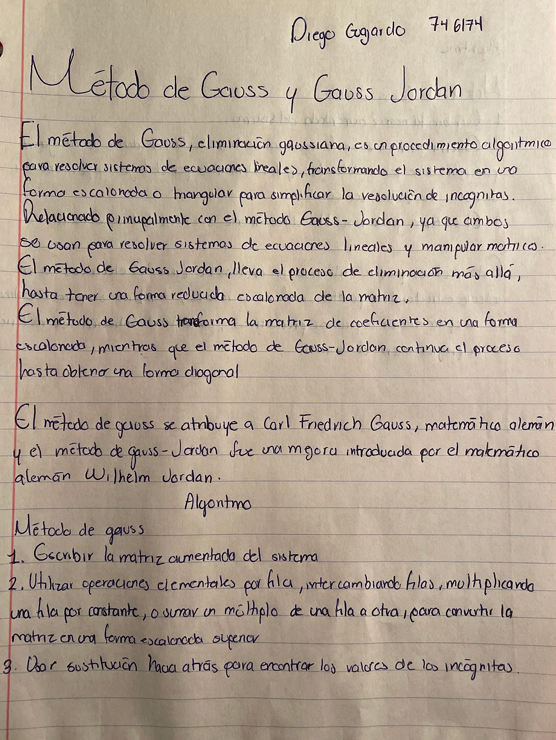 Diego Gogardo 746174
Método de Gauss y Gauss Jordan
El método de Gauss, eliminación gaussiana, es un procedimiento algorítmico
para resolver sistemas de ecuaciones lineales, transformando el sistema en una
forma escalonada o triangular para simplificar la resolución de incognitas.
Relacionado principalmente con el método Gauss-Jordan, ya que ambos
se usan para resolver sistemas de ecuaciones lineales y manipular matrices.
El método de Gauss Jordan, lleva el proceso de eliminación más allá,
hasta tener una forma reducida escalonada de la matriz.
El método de Gauss transforma la matriz de coeficientes en una forma
escalonada, mientras que el método de Gauss-Jordan continua el proceso
hasta obtener una forma diagonal
El método de gauss se atribuye a Carl Friedrich Gauss, matemático alemán
y el método de gauss-Jordan fue una mejora introducida por el matemático
alemán Wilhelm Jordan.
Algoritmo
Método de gauss
1. Escribir la matriz aumentada del sistema
2. Utilizar operaciones elementales por fila, intercambiando filas, multiplicando
una fila por constante, o sumar un múltiplo de una fila a otra, para convertir la
matriz en una forma escalonada superior
3. Usar sustitución hacia atrás para encontrar los valores de las incógnitas.